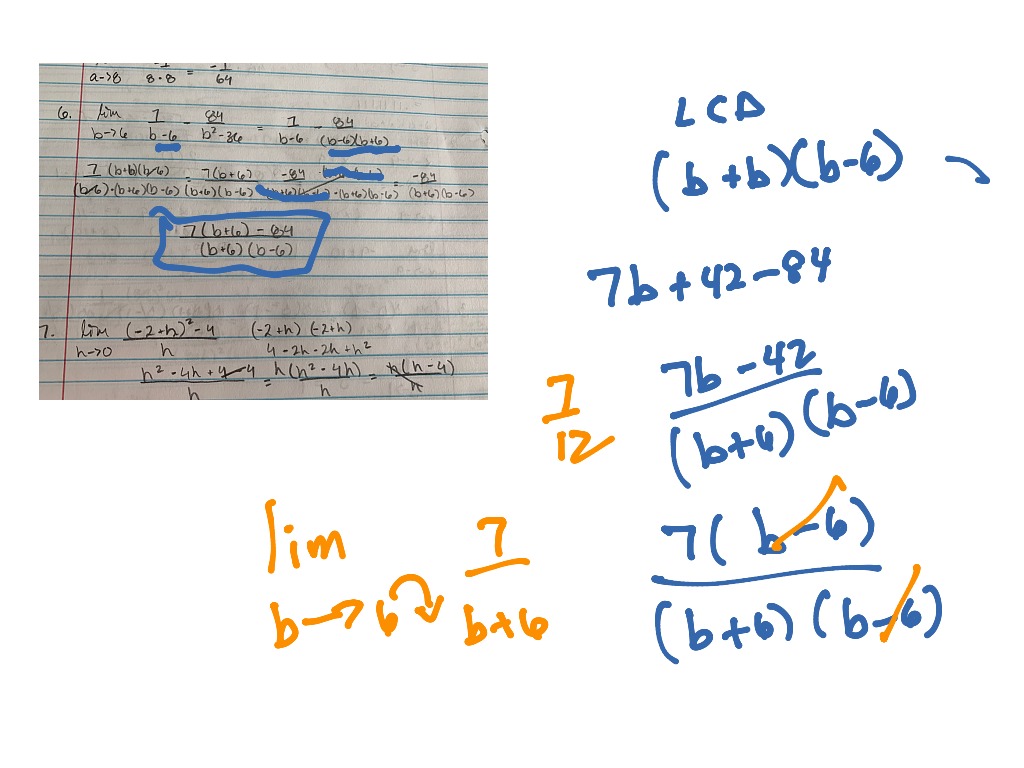 a→8 -1/8·8 = -1/64
6. lim b→6 7/b-6 - 84/b²-36 = 7/b-6 - 84/(b-6)(b+6)
7/(b-6) · (b+6)(b-6)/(b+6)(b-6) = 7(b+6)/(b+6)(b-6) -84 · (b+6)(b-6) = -84/(b+6)(b-6)
7(b+6) - 84/(b+6)(b-6)
7. lim h→0 (-2+h)² - 4/h (-2+h)(-2+h)
4 - 2h - 2h + h²
h² - 4h + 4 - 4/h = h(h² - 4h)/h = h(h-4)/h
LCD
(b+b)(b-6)
7b+42-84
7b-42/(b+6)(b-6)
7/12
7(b-6)/(b+6)(b-6)
lim b→6 7/b+6